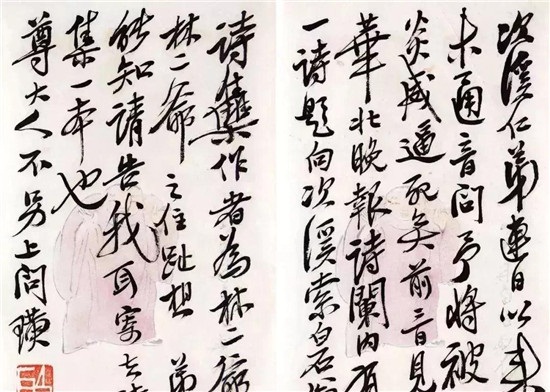 次溪仁弟連日以來
未通音問予將被
炎威逼死矣前見
華北晚報詩闌內有
一詩題向次溪索白石
詩集作者為林二爺
林二爺之住趾想弟
能知請告我耳寄去詩
集一本也
尊大人不另上問璜